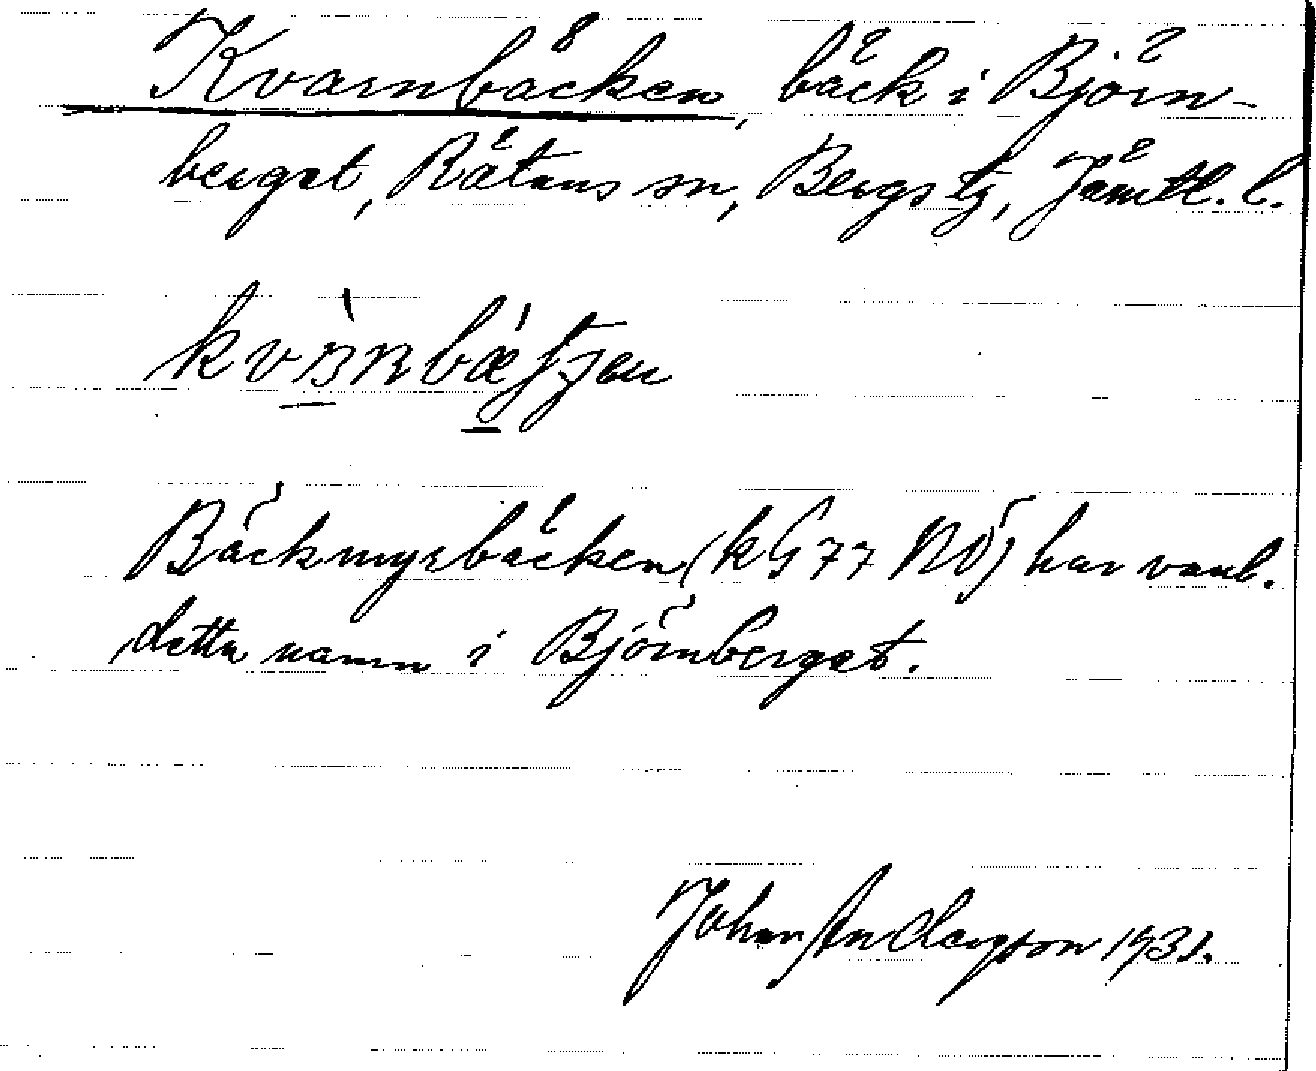 Kvarnbäcken, bäck i Björn-
berget, Rätans sn, Bergs tg, Jämtl. l.
Bäckmyrbäcken (kG 77 NÖ) har vanl.
detta namn i Björnberget.
Johan Andersson 1931.